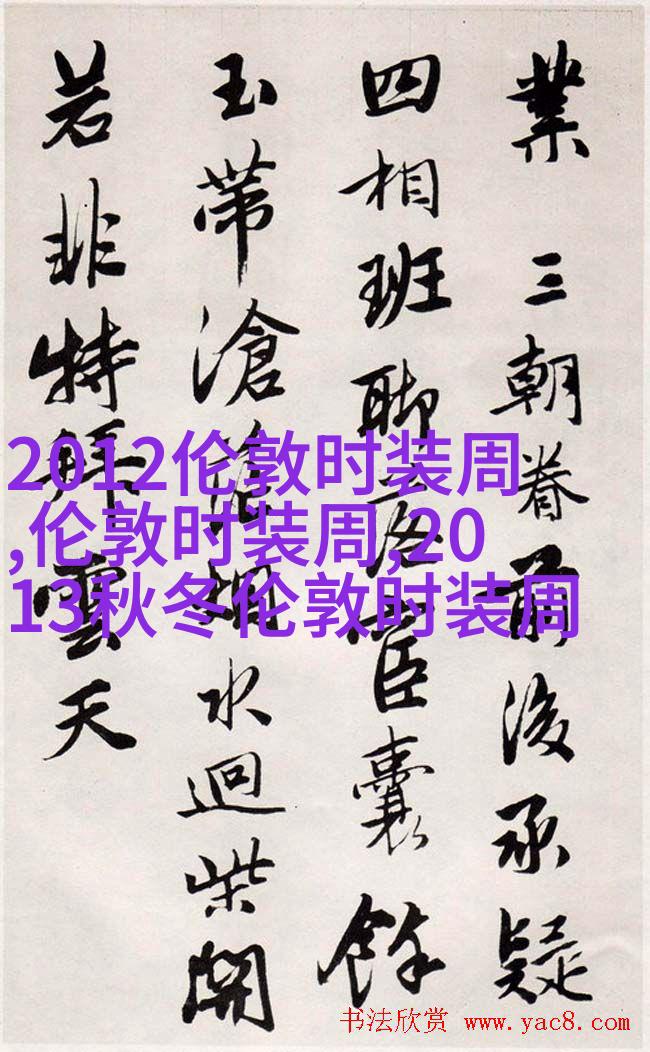 業 三朝眷前後承疑
四相班聊落宦囊餘
玉帶滄水迴柴開
若非特拜雲天
2012伦敦时装周
,伦敦时装周,20
13秋冬伦敦时装周
书法欣赏 www.yac8.com